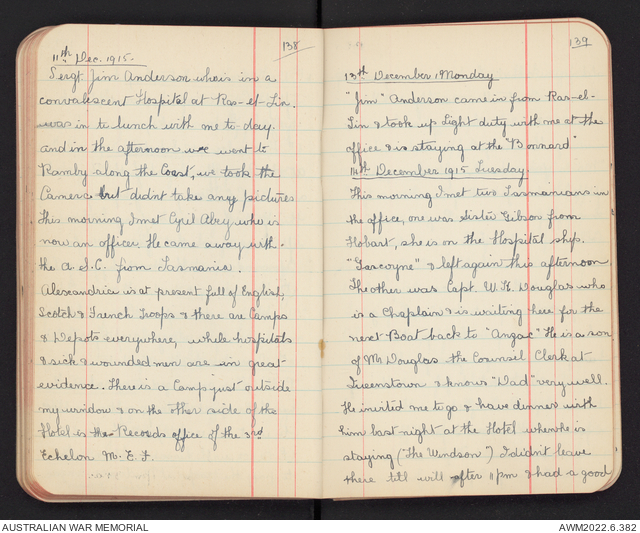 138
11th Dec. 1915.
Sergt Jim Anderson who is in a
convalescent Hospital at Ras-el-Tin.
was in to lunch with me to-day.
and in the afternoon we went to
Ramby along the Coast, we took the
Camera but didnt take any pictures
This morning I met Cyril Abry who is
now an officer. He came away with.
the A.S.C. from Tasmania.
Alexandria is at present full of English,
Scotch & French Troops & there are Camps
& Depots everywhere, while hospitals
& sick & wounded men are in great
evidence. There is a Camp just outside
my window & on the other side of the
Hotel is the Records office of the 3rd
Echelon M. E. F.
139
13th December Monday
"Jim" Anderson came in from Ras-el-
Tin & took up light duty with me at the
office & is staying at the "Bonnard"
14th December 1915 Tuesday.
This morning I met two Tasmanians in
the office, one was Sister Gibson from
Hobart, she is on the Hospital ship.
"Gascoyne" & left again this afternoon
The other was Capt. W. K. Douglas who
is a Chaplain & is waiting here for the
next Boat back to "Anzac" He is a son
of Mr Douglas the Counsil Clerk at
Queenstown & knows "Dad" very well.
He invited me to go & have dinner with
him last night at the Hotel where he is
staying ("The Windsor") I didn't leave
there till well after 11 pm & had a good
AUSTRALIAN WAR MEMORIAL
AWM2022.6.382